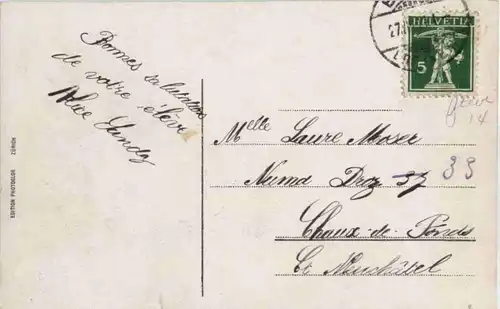 Bonnes salutations
de votre élève
Alice Sandoz
HELVETIA
5
27.
Melle Laure Moser
Numa Droz 37 39
Chaux-de-Fonds
Ct Neuchâtel
14
EDITION PHOTOGLOB ZÜRICH